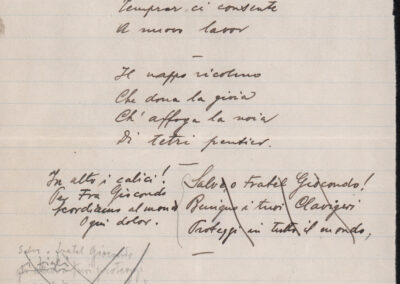 Temprar ci consente
A nuovo lavor
Il nappo ricolmo
Che dona la gioia
Ch' affoga la noia
Di tetri pensier.
In alto i calici!
Per Fra Giocondo
Scordiamo al mondo
Ogni dolor.
Salve o Fratel Giocondo!
Benigno i tuoi Clavigeri
Proteggi in tutto il mondo,
Salve o fratel Giocondo